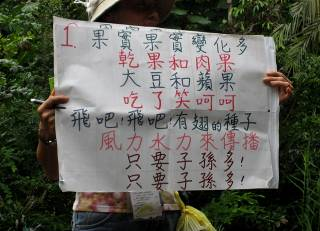 1. 果實果實變化多
乾果和肉果
大豆和蘋果
吃了笑呵呵
飛吧!飛吧!有翅的種子
風力水力來傳播
只要子孫多!
只要子孫多!